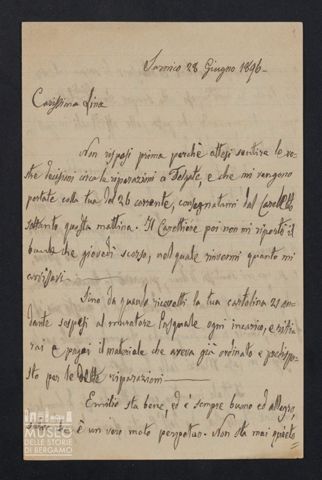 Sarnico 28 Giugno 1896-
Carissima Lina
Non risposi prima perchè attesi sentire le vo-
stre decisioni circa le riparazioni a Telgate, e che mi vengono
portate colla tua del 26 corrente, consegnatami dal
soltanto questa mattina. Il Carettiere poi non mi riportò il
che giovedì scorso, nel quale rinvenni quanto mi
avvisavi.
Fino da quando ricevetti la tua cartolina 21 an-
dante sospesi al muratore Pasquale ogni incarico, e ritir
rai e pagai il materiale che aveva già ordinato e predispo-
sto per le dette riparazioni
Emilio sta bene, ed è sempre buono ed allegro,
è un vero moto perpetuo. Non sta mai quieto
MUSEO
DELLE STORIE
DI BERGAMO